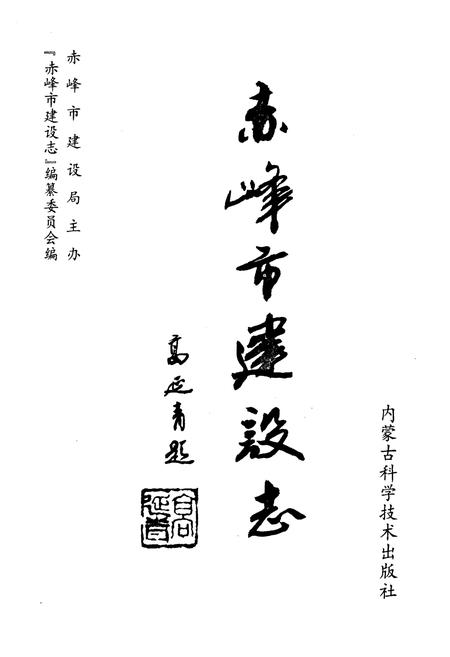 内蒙古科学技术出版社
赤峰市建設志
高延青题
高延青
赤峰市建设局主办
『赤峰市建设志』编纂委员会编